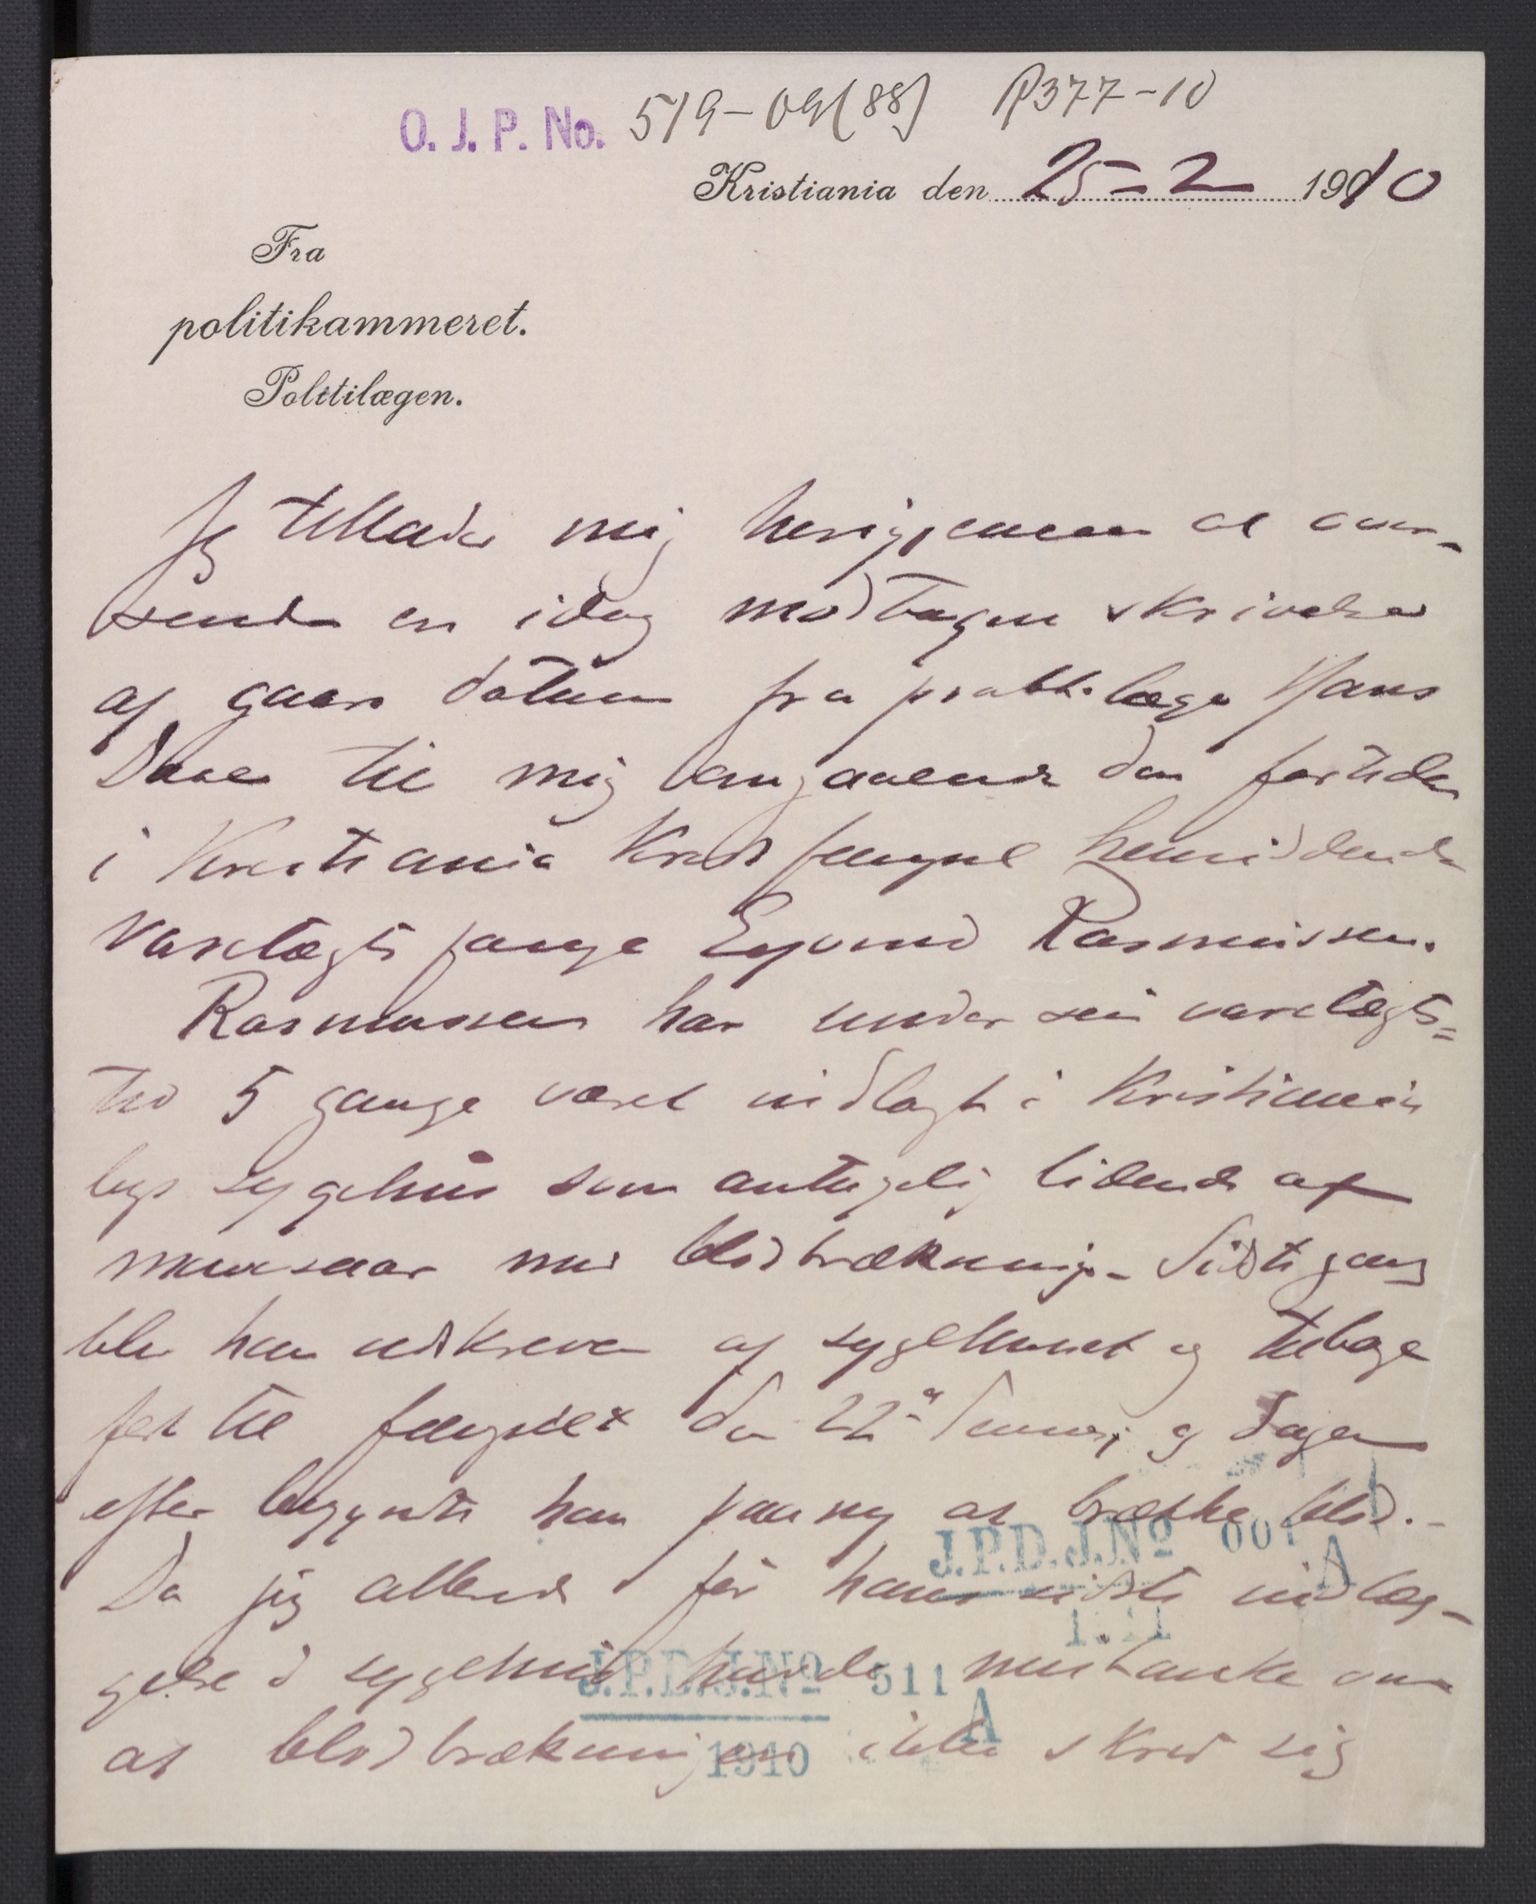 O. J. P. No. 519-09 (88) P377-10
Kristiania den 25-2 1910
Fra
politikammeret.
Polttilægen.
Jg tillader mig herigjennem at over-
sende en idag modtagen skrivelse
af gaars datum fra prakt. læge Hans
Daae til mig angaaende den fortiden
i Kristiania Kredsfængsel hensiddende
Varetægtsfange Eyvind Rasmussen.
Rasmussen har under sin varetægts=
tid 5 gange været indlagt i Kristiania
bys sygehus som antagelig lidende af
mavesaar med blodbrækning. Sidste gang
blev han udskreven af sygehuset og tilbage
ført til fængslet den 22 og dagen
efter begyndte han paany at brække blod.-
Da jeg allerede før hans sidste indlæg-
gelse i sygehuset havde mistanke om
at blodbrækningen ikke skrev sig
J.P.D.J.Nº 001 A
1911
J.P.D.J.Nº 511 A
1910